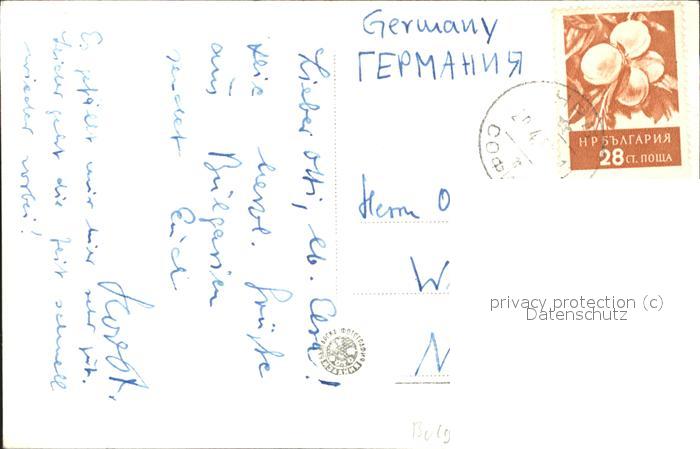 Germany
ГЕРМАНИЯ
НР БЪЛГАРИЯ
28 СТ. ПОЩА
СОФ
Herrn O
W
N
privacy protection (c)
Datenschutz
Lieber Otti, lb. Elsa!
Die herzl. Grüße
aus Bulgarien
sendet Euch
Horst.
Es gefällt mir hier sehr gut.
Leider geht die Zeit schnell
wieder vorbei!
Bulg